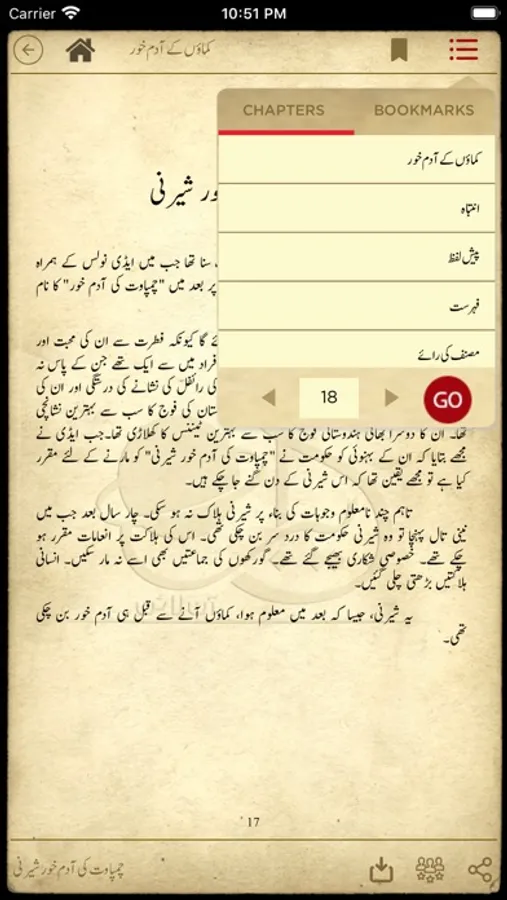 Carrier 10:51 PM
کماؤں کے آدم خور
CHAPTERS BOOKMARKS
کماؤں کے آدم خور
انتباہ
پیش لفظ
فہرست
مصنف کی رائے
18 GO
ور شیرنی
سنا تھا جب میں ایڈی نولس کے ہمراہ
پر بعد میں "چمپاوت کی آدم خور" کا نام
ئے گا کیونکہ فطرت سے ان کی محبت اور
فراد میں سے ایک تھے جن کے پاس نہ
کی رائفل کی نشانے کی درستگی اور ان کی
ستان کی فوج کا سب سے بہترین نشانچی
تھا۔ ان کا دوسرا بھائی ہندوستانی فوج کا سب سے بہترین ٹینس کا کھلاڑی تھا۔جب ایڈی نے
مجھے بتایا کہ ان کے بہنوئی کو حکومت نے "چمپاوت کی آدم خور شیرنی" کو مارنے کے لئے مقرر
کیا ہے تو مجھے یقین تھا کہ اس شیرنی کے دن گنے جا چکے ہیں۔
تاہم چند نامعلوم وجوہات کی بناء پر شیرنی ہلاک نہ ہو سکی۔ چار سال بعد جب میں
نینی تال پہنچا تو وہ شیرنی حکومت کا درد سر بن چکی تھی۔ اس کی ہلاکت پر انعامات مقرر ہو
چکے تھے۔ خصوصی شکاری بھیجے گئے تھے۔ گورکھوں کی جماعتیں بھی اسے نہ مار سکیں۔ انسانی
ہلاکتیں بڑھتی چلی گئیں۔
یہ شیرنی، جیسا کہ بعد میں معلوم ہوا، کماؤں آنے سے قبل ہی آدم خور بن چکی
تھی۔
17
چمپاوت کی آدم خور شیرنی